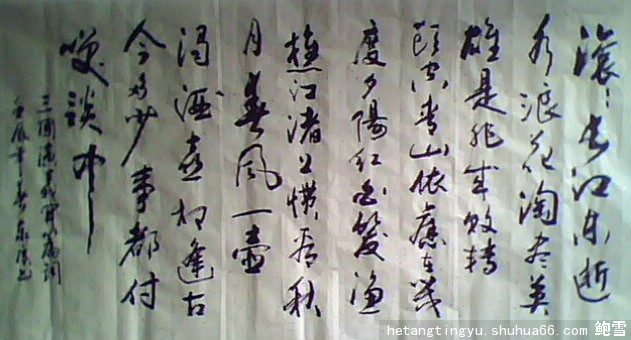 滚〻长江东逝
水浪花淘尽英
雄是非成败转
头空青山依旧在几
度夕陽红白髮渔
樵江渚上惯看秋
月春风一壶
浊酒喜相逢古
今多少事都付
笑談中
三国演义开篇词
壬辰年春
hetangtingyu.shuhua66.com 鲍雪